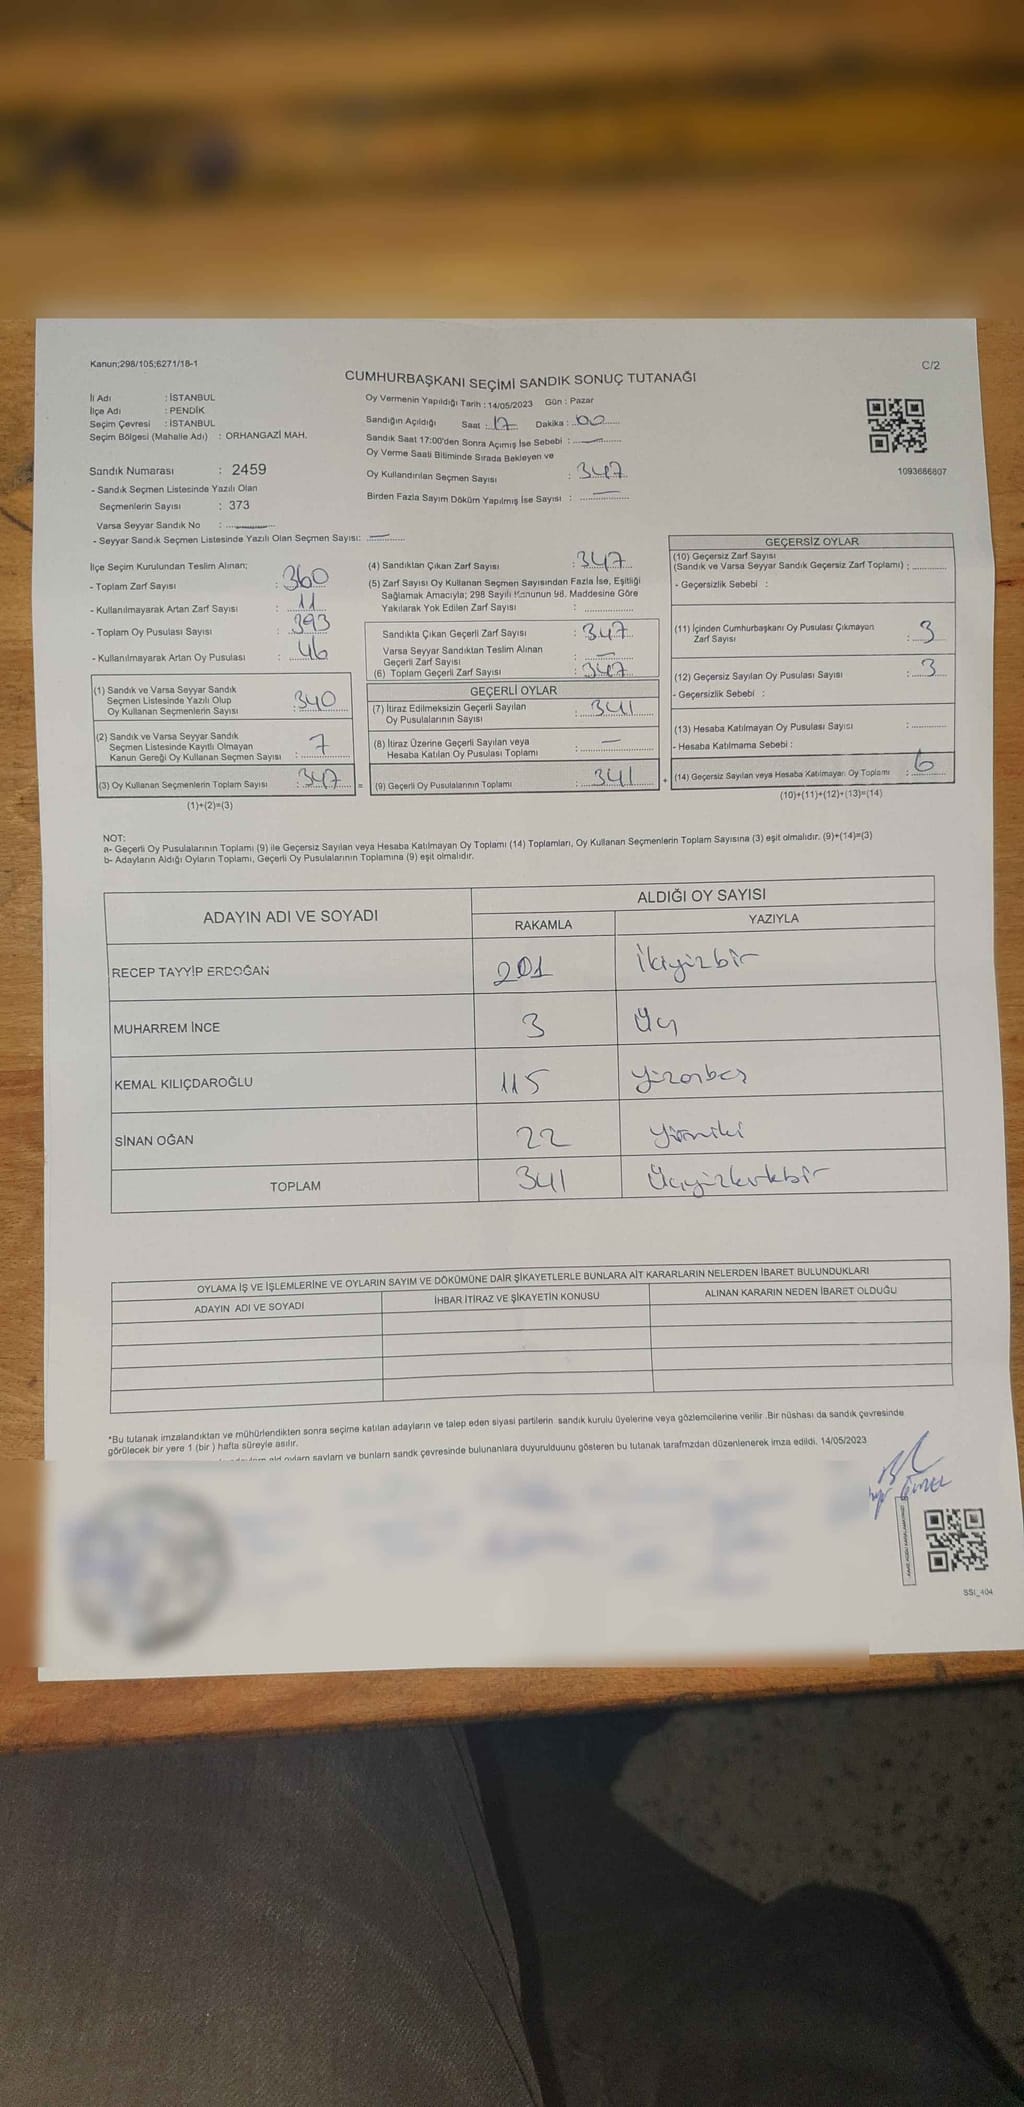 Kanun;298/105;6271/18-1
C/2
CUMHURBAŞKANI SEÇİMİ SANDIK SONUÇ TUTANAĞI
İl Adı : İSTANBUL
İlçe Adı : PENDİK
Seçim Çevresi : İSTANBUL
Seçim Bölgesi (Mahalle Adı) : ORHANGAZİ MAH.
Sandık Numarası : 2459
- Sandık Seçmen Listesinde Yazılı Olan
Seçmenlerin Sayısı : 373
Varsa Seyyar Sandık No :
- Seyyar Sandık Seçmen Listesinde Yazılı Olan Seçmen Sayısı:
Oy Vermenin Yapıldığı Tarih : 14/05/2023 Gün : Pazar
Sandığın Açıldığı Saat : 17 Dakika : 00
Sandık Saat 17:00'den Sonra Açımış İse Sebebi :
Oy Verme Saati Bitiminde Sırada Bekleyen ve
Oy Kullandırılan Seçmen Sayısı : 347
Birden Fazla Sayım Döküm Yapılmış İse Sayısı :
1093686807
İlçe Seçim Kurulundan Teslim Alınan;
- Toplam Zarf Sayısı : 360
- Kullanılmayarak Artan Zarf Sayısı : 11
- Toplam Oy Pusulası Sayısı : 393
- Kullanılmayarak Artan Oy Pusulası : 46
(1) Sandık ve Varsa Seyyar Sandık
Seçmen Listesinde Yazılı Olup
Oy Kullanan Seçmenlerin Sayısı : 340
(2) Sandık ve Varsa Seyyar Sandık
Seçmen Listesinde Kayıtlı Olmayan
Kanun Gereği Oy Kullanan Seçmen Sayısı : 7
(3) Oy Kullanan Seçmenlerin Toplam Sayısı : 347 =
(1)+(2)=(3)
(4) Sandıktan Çıkan Zarf Sayısı : 347
(5) Zarf Sayısı Oy Kullanan Seçmen Sayısından Fazla İse, Eşitliği
Sağlamak Amacıyla; 298 Sayılı Kanunun 98. Maddesine Göre
Yakılarak Yok Edilen Zarf Sayısı :
Sandıkta Çıkan Geçerli Zarf Sayısı : 347
Varsa Seyyar Sandıktan Teslim Alınan
Geçerli Zarf Sayısı :
(6) Toplam Geçerli Zarf Sayısı : 347
GEÇERLİ OYLAR
(7) İtiraz Edilmeksizin Geçerli Sayılan
Oy Pusulalarının Sayısı : 341
(8) İtiraz Üzerine Geçerli Sayılan veya
Hesaba Katılan Oy Pusulası Toplamı :
(9) Geçerli Oy Pusulalarının Toplamı : 341 +
GEÇERSİZ OYLAR
(10) Geçersiz Zarf Sayısı
(Sandık ve Varsa Seyyar Sandık Geçersiz Zarf Toplamı) :
- Geçersizlik Sebebi :
(11) İçinden Cumhurbaşkanı Oy Pusulası Çıkmayan
Zarf Sayısı : 3
(12) Geçersiz Sayılan Oy Pusulası Sayısı : 3
- Geçersizlik Sebebi :
(13) Hesaba Katılmayan Oy Pusulası Sayısı :
- Hesaba Katılmama Sebebi :
(14) Geçersiz Sayılan veya Hesaba Katılmayan Oy Toplamı : 6
(10)+(11)+(12)+(13)=(14)
NOT:
a- Geçerli Oy Pusulalarının Toplamı (9) ile Geçersiz Sayılan veya Hesaba Katılmayan Oy Toplamı (14) Toplamları, Oy Kullanan Seçmenlerin Toplam Sayısına (3) eşit olmalıdır. (9)+(14)=(3)
b- Adayların Aldığı Oyların Toplamı, Geçerli Oy Pusulalarının Toplamına (9) eşit olmalıdır.
ADAYIN ADI VE SOYADI
ALDIĞI OY SAYISI
RAKAMLA YAZIYLA
RECEP TAYYİP ERDOĞAN 201 İkiyüzbir
MUHARREM İNCE 3 Üç
KEMAL KILIÇDAROĞLU 115 yüzonbeş
SİNAN OĞAN 22 yirmiki
TOPLAM 341 Üçyüzkırkbir
OYLAMA İŞ VE İŞLEMLERİNE VE OYLARIN SAYIM VE DÖKÜMÜNE DAİR ŞİKAYETLERLE BUNLARA AİT KARARLARIN NELERDEN İBARET BULUNDUKLARI
ADAYIN ADI VE SOYADI İHBAR İTİRAZ VE ŞİKAYETİN KONUSU ALINAN KARARIN NEDEN İBARET OLDUĞU
*Bu tutanak imzalandıktan ve mühürlendikten sonra seçime katılan adayların ve talep eden siyasi partilerin sandık kurulu üyelerine ve gözlemcilerine verilir .Bir nüshası da sandık çevresinde
görülecek bir yere 1 (bir ) hafta süreyle asılır.
oyların sayların ve bunların sandk çevresinde bulunanlara duyurulduunu gösteren bu tutanak tarafmzdan düzenlenerek imza edildi. 14/05/2023
SSI_404